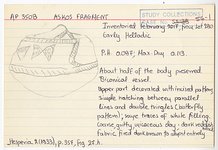 AP 550B ASKOS FRAGMENT
STUDY COLLECTIONS
Inventoried February 2015, from lot
Early Helladic
P.H. 0.087; Max. Diam. 0.113.
About half of the body preserved.
Biconical vessel.
Upper part decorated with incised pattern;
single hatching between parallel
lines and double triangles (butterfly
pattern); some traces of white filling.
Coarse, gritty, micaceous clay; dark
fabric, fired dark brown to
Hesperia, (1933), p. 358, Fig.